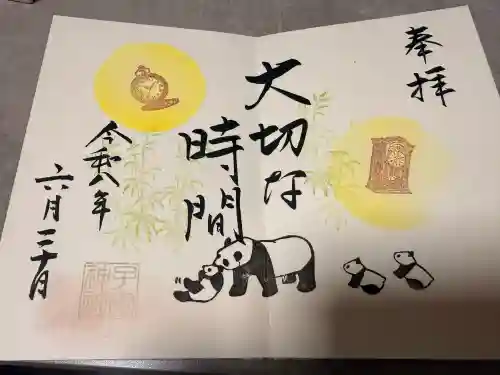 奉拝
大切な
時間
令和八年
六月三十日